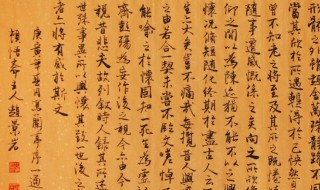 當其欣於所遇暫得於己快然自
曾不知老之將至及其所之既惓情
隨事遷感慨係之矣向之所欣俛
仰之間以為陳迹猶不能不以之興
懷況脩短隨化終期於盡古人云
死生亦大矣豈不痛哉每攬昔人興感
之由若合一契未嘗不臨文嗟悼不
能喻之於懷固知一死生為虛誕
齊彭殤為妄作後之視今亦由今之
視昔悲夫故列敘時人錄其所述雖
世殊事異所以興懷其致一也後之
者亦將有感於斯文
庚寅年月蘭亭序一過
悟齋主人趙景岩